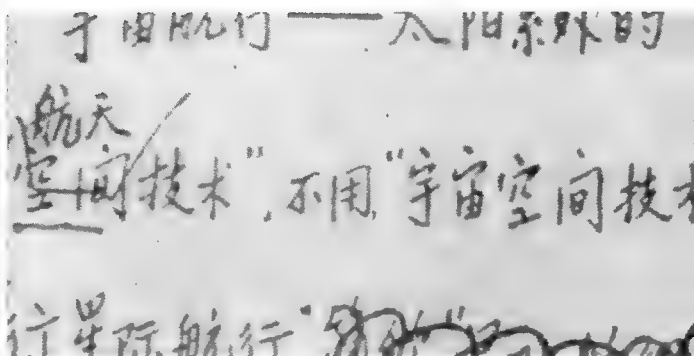 宇宙航行——太阳系外的
航天
空间技术”，不用“宇宙空间技术
行星际航行”